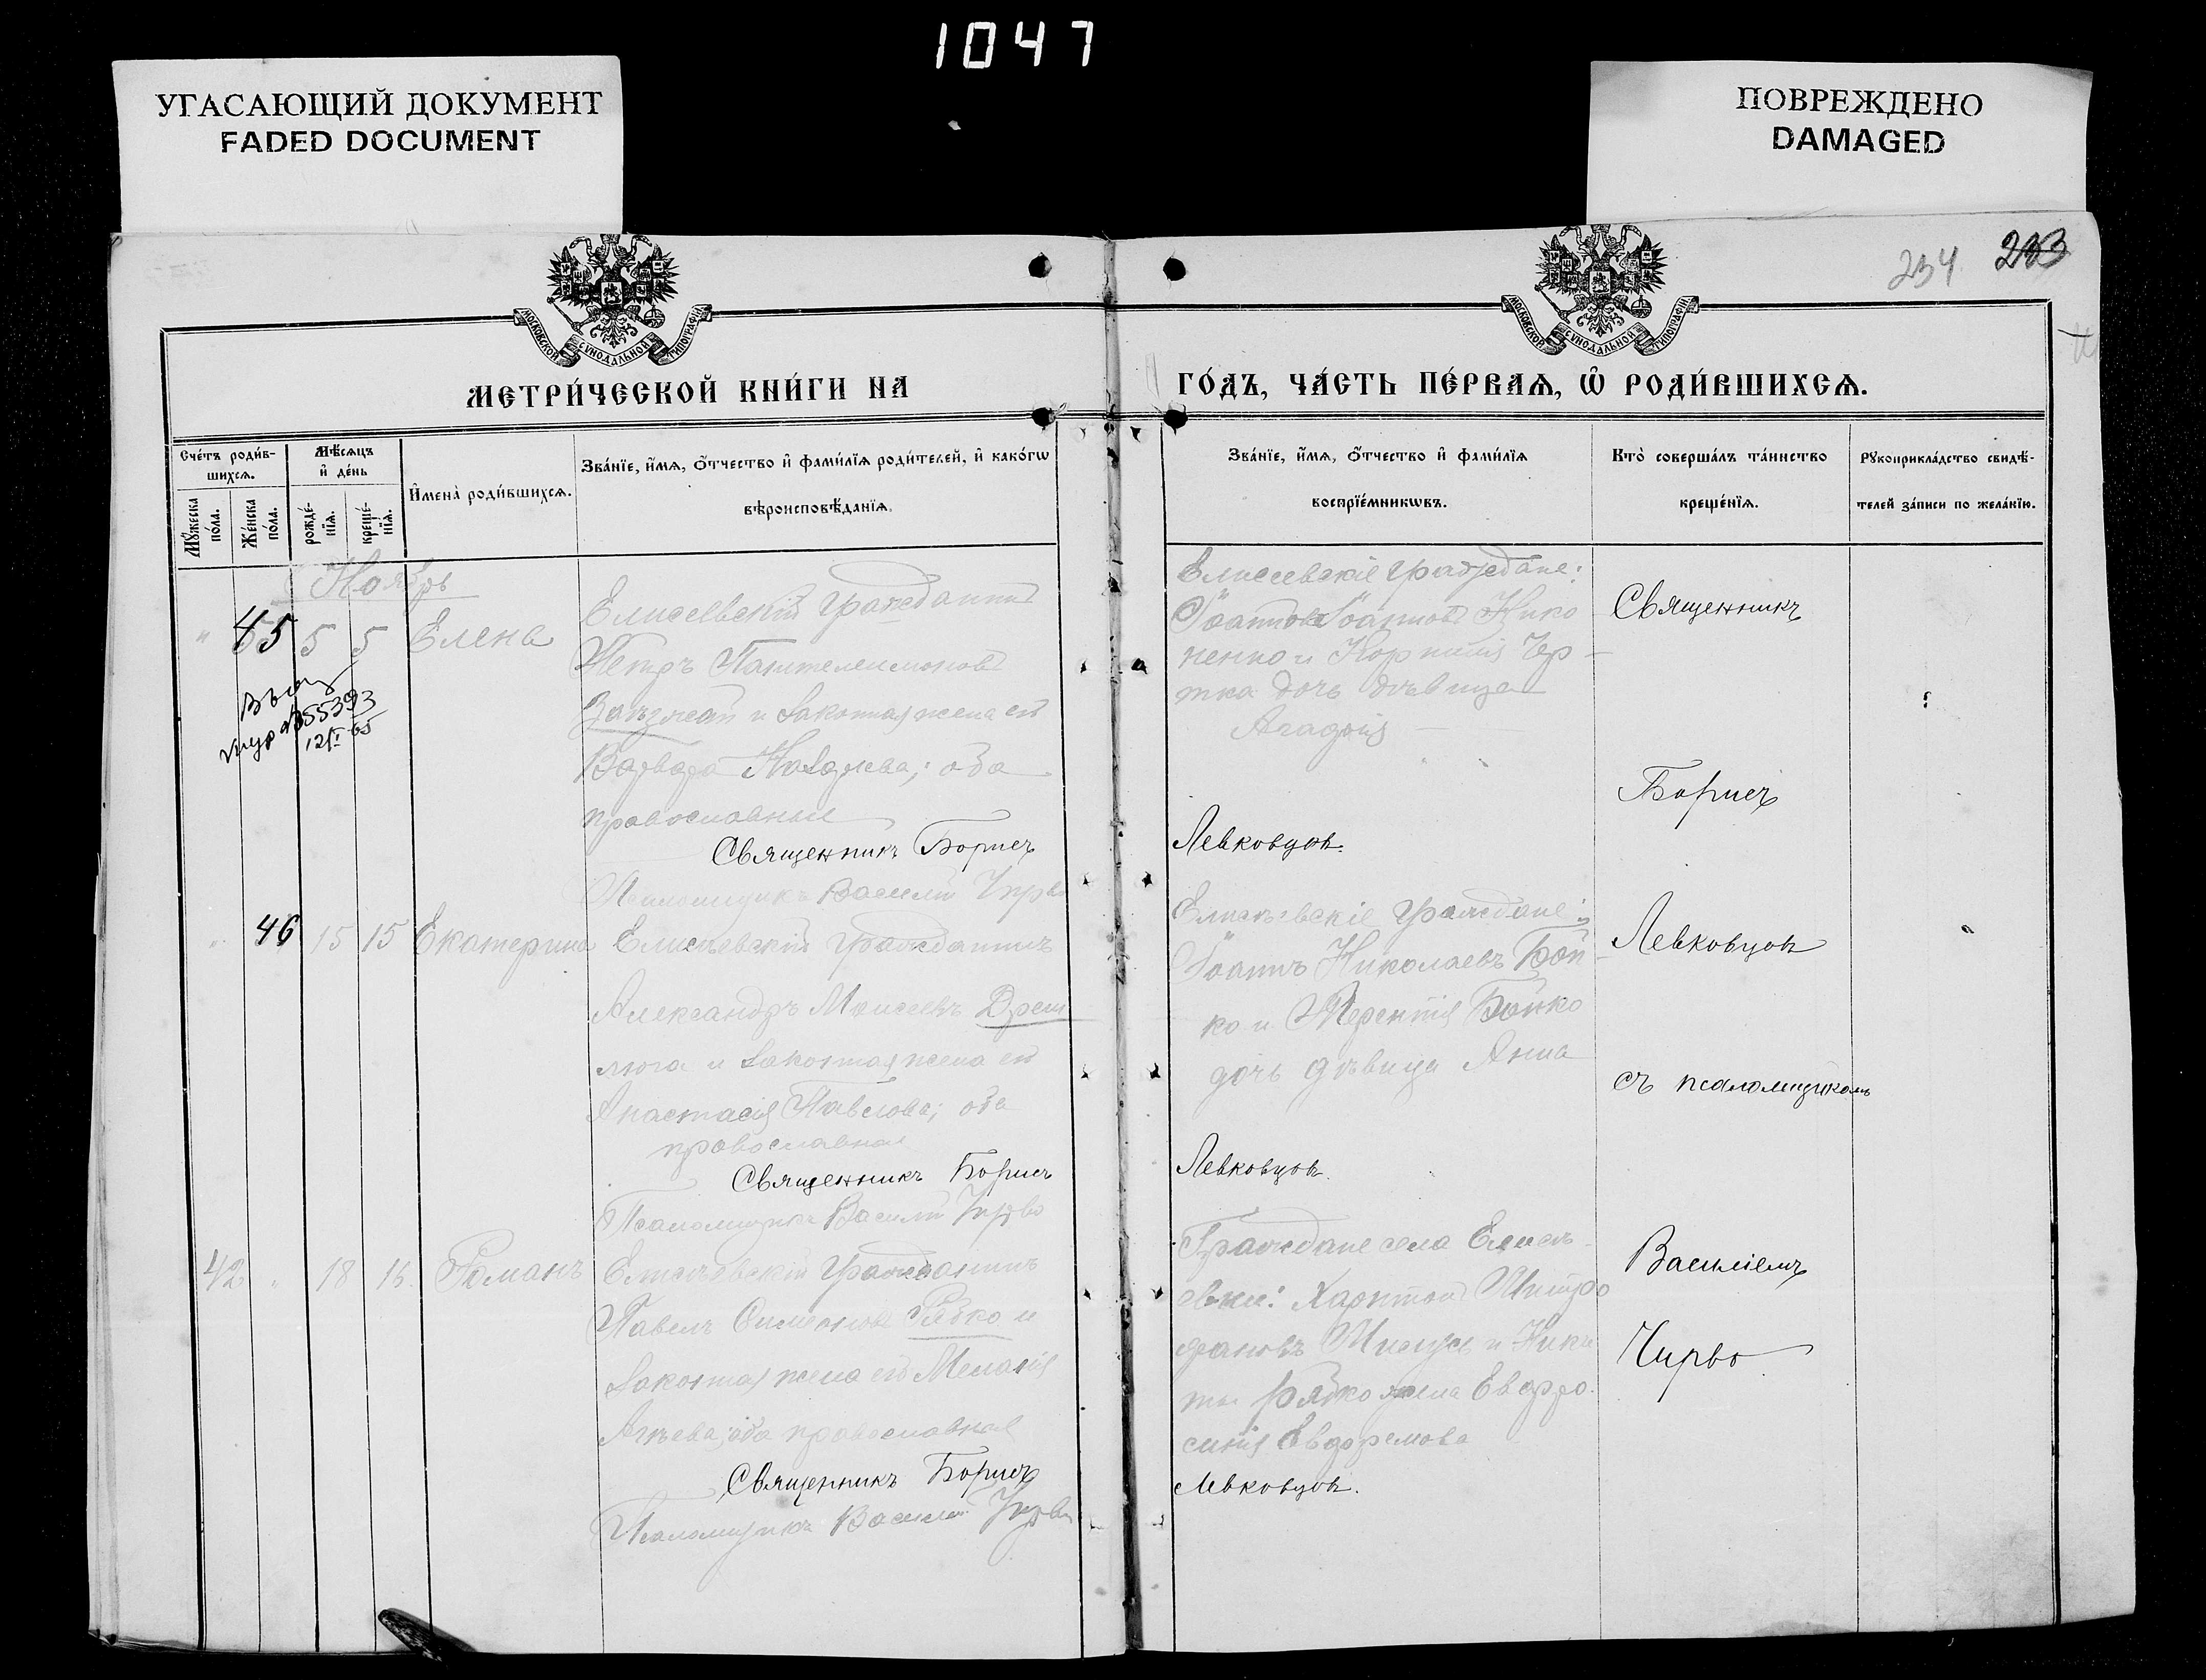 1047
УГАСАЮЩИЙ ДОКУМЕНТ
FADED DOCUMENT
ПОВРЕЖДЕНО
DAMAGED
234 233
МОСКОВСКОЙ СУНОДАЛЬНОЙ ТИПОГРАФІИ
МОСКОВСКОЙ СУНОДАЛЬНОЙ ТИПОГРАФІИ
МЕТРИ́ЧЕСКОЙ КНИ́ГИ НА
ГО́ДЪ, ЧА́СТЬ ПЕ́РВАЯ, Ѡ҆ РОДИ́ВШИХСЯ.
Сче́тъ роди́в-
шихся.
Мѣ́сяцъ
и҆ де́нь
Му́жеска по́ла.
Же́нска по́ла.
рожде́-
нїя.
креще́-
нїя.
И҆мена̀ роди́вшихся.
Зва́нїе, и҆́мя, ѻ҆́тчество и҆ фами́лїя роди́телей, и҆ како́гѡ
вѣроисповѣ́данїя.
Зва́нїе, и҆́мя, ѻ҆́тчество и҆ фами́лїя
воспрїе́мникѡвъ.
Кто̀ соверша́лъ та́инство
креще́нїя.
Рукоприкла́дство свидѣ́-
телей за́писи по жела́нїю.
Ноябрь
" 45 5 5 Елена
Елисеевскій гражданинъ
Петръ Пантелеимоновъ
и законная жена его
Варвара; оба
православные
Священникъ Борисъ
Левковцовъ.
Псаломщикъ Василій Чирво
Елисеевскіе граждане:
Іоаннъ Іоанновъ Нико
ненко и Корнилія Чер-
тка дочь дѣвица
Священникъ
Борисъ
Левковцовъ
съ псаломщикомъ
Василіемъ
Чирво
" 46 15 15 Екатерина
Елисѣевскій гражданинъ
Александръ Моисеевъ Дрем
люга и законная жена его
Анастасія Павлова; оба
православные
Священникъ Борисъ
Левковцовъ.
Псаломщикъ Василій Чирво
Елисѣевскіе граждане:
Іоаннъ Николаевъ Бой-
ко и Терентія Бойко
дочь дѣвица Анна
42 " 18 18. Романъ
Елисѣевскій гражданинъ
Павелъ Симеоновъ Рябко и
законная жена его Меланія
оба православные
Священникъ Борисъ
Левковцовъ.
Псаломщикъ Василій Чирво
Граждане села Елисѣ
евки: Харитонъ Митро
фановъ и Ники
ты Рябко жена Евфро
синія